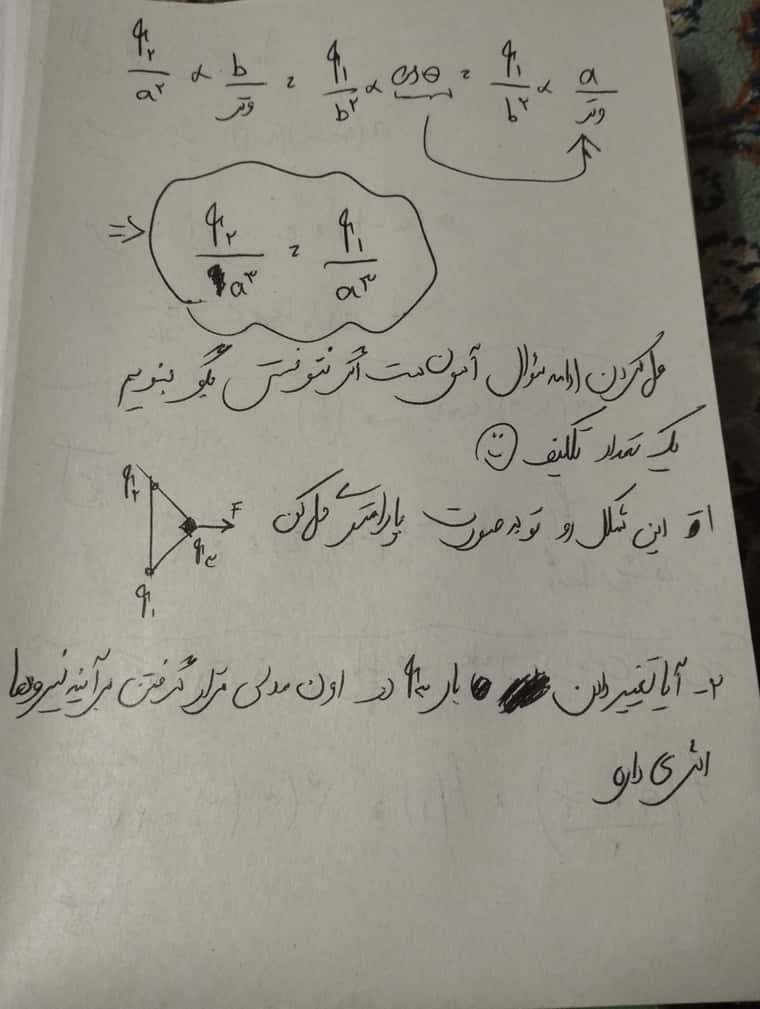 q۲/a۲ × b/وتر = q۱/b۲ × cosθ = q۱/b۲ × a/وتر
⇒ q۲/a۳ = q۱/a۳
حل کردن ادامه سوال آسون هست اگر نتونستی بگو بنویسم
یک تعداد تکلیف ☺
q۲
F
۱- این شکل رو تو به صورت پارامتری حل کن
q۳
q۱
۲- آیا تغییر دادن بار q۳ در اون مدلی قرار گرفتن برآیند نیروها
اثری داره